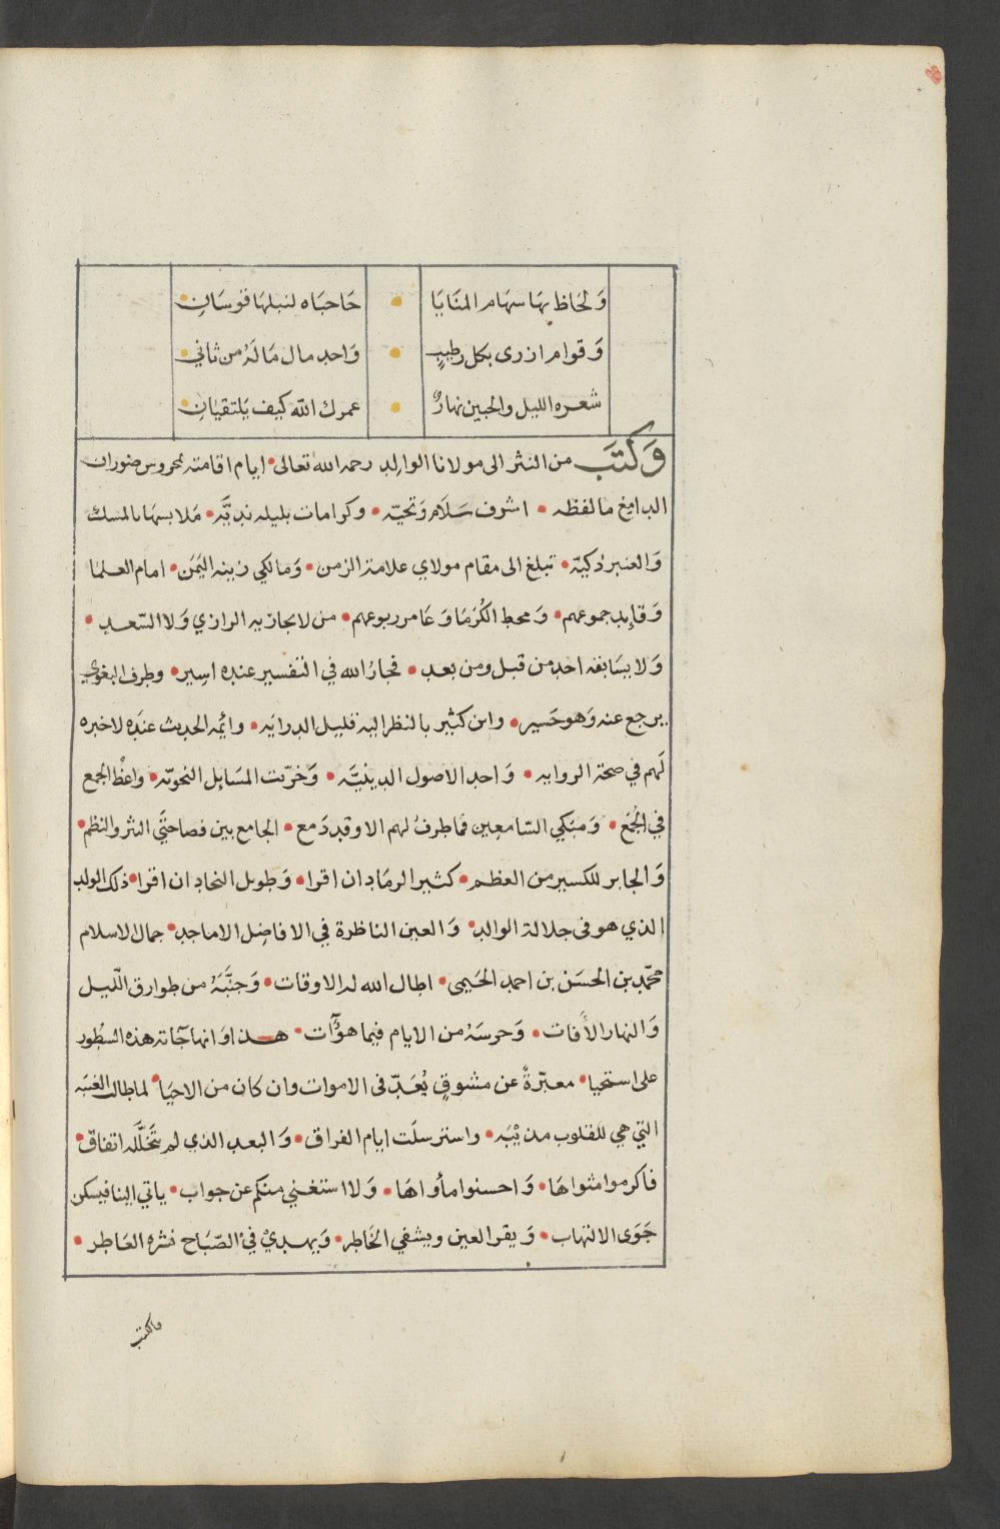 وَلحَاظ بهَا سهَام المنَايَا • حَاجبَاه لنبلهَا قوسَانِ
وَقوام ازرى بكل رطيبٍ • وَاحد مال مَا لَهُ من ثاني
شعره الليل والجبين نهارٌ • عمرك الله كيف يَلتقيَانِ
وَكتَبَ من النثر الى مولانا الوالد رحمه الله تعالى • ايام اقامته بمحروس ضوران
الدامغ ما لفظه • اشرف سَلَام وَتحيّه • وكرامات بليله نديَّه • مَلابسهَا بالمسك
وَالعنبر ذكيّه • تبلغ الى مقام مولاي علامة الزمن • وَمالكي زينه اليَمَن • امام العلمَا
وَقايد جموعهم • وَمحط الكُرَمَا وَعَامر ربوعهم • من لا يجاريه الرازي وَلا السّعد •
وَلا يسَابقه احد من قبل ومن بعد • فجارُ الله في التفسير عنده اسِير • وطرف البغوي
يرجع عنه وَهو حَسير • وابن كثير بالنظر اليه قليل الدرايَه • وائمه الحديث عندَه لا خبره
لَهم في صحة الروايه • وَاحد الاصول الدينيَّه • وَخرّيت المسَايل النحويّه • واعظ الجمع
في الجُمَع • وَمبَكي السّامعِين فما طرفٌ لهم الا وقد دَمع • الجامع بين فصاحتَي النثر والنظم •
وَالجابر للكسير من العظم • كثير الرمَاد ان اقرا • وَطويل النجاد ان اقرا • ذلك الولد
الذي هو في جلالة الوالد • وَالعين الناظرة في الافاضِل الاماجد • جمال الاسلام
محمّد بن الحسَن بن احمد الحَيمى • اطال الله له الاوقات • وَجنَّبَهُ من طوارق اللّيل
وَالنهار الأفات • وَحرسَهُ من الايام فيما هو آت • هـذا وَانها جآته هذه السُطُور
على استحيا • معبّرةً عن مشوقٍ يُعَدّ فى الاموات وان كان من الاحيَا • لما طالت الغيبَه
التي هي للقلوب مذيْبَه • واسترسلَت ايام الفراق • وَالبعد الذي لم يتخَلَّله اتفاق •
فاكرموا مثواهَا • وَاحسنوا مأواهَا • وَلا استغني منكم عن جواب • ياتي الينا فيسكن
جَوَى الالتهاب • وَيقر العين ويشفي الخَاطر • وَيهديْ فيْ الصّبَاح نشره العَاطِر •
ما كتب